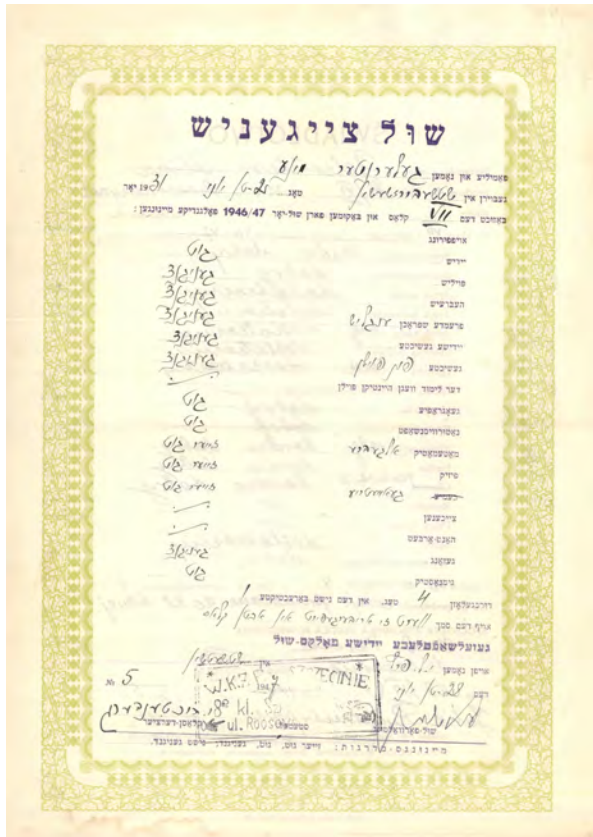 שול צייגעניש
פאמיליע און נאמען
געבוירן אין טאג 25-טן יוני 1931 יאר
באזוכט דעם VII קלאס און באקומען פארן שול-יאר 1946/47 פאלגנדיקע מיינונגען:
אויפפירונג גוט
יידיש גענוגנד
פויליש גענוגנד
העברעיש גענוגנד
פרעמדע שפראכן ענגליש גענוגנד
יידישע געשיכטע גענוגנד
געשיכטע פון פוילן גענוגנד
דער לימוד וועגן היינטיקן פוילן
געאגראפיע גוט
נאטורוויסנשאפט גוט
מאטעמאטיק אלגעברע זייער גוט
פיזיק זייער גוט
געאמעטריע זייער גוט
צייכענען
האנט-ארבעט
געזאנג גענוגנד
גימנאסטיק גוט
דורכגעלאזן 4 טעג, און דעם
אויף דעם סמך ווערט קלאס
געזעלשאפטלעכע יידישע פאלקס-שול
אויפן נאמען י. ל. פרץ אין שטשעטשין
דעם 28-טן יוני 1947 № 5
W.K.Ż.P. SZCZECINIE
ul. Roosev
שול-פארוואלטער שטעמפל קלאסן-דערציער
מיינונגס-מדרגות: זייער גוט, גוט, גענוגנד, נישט גענוגנד.